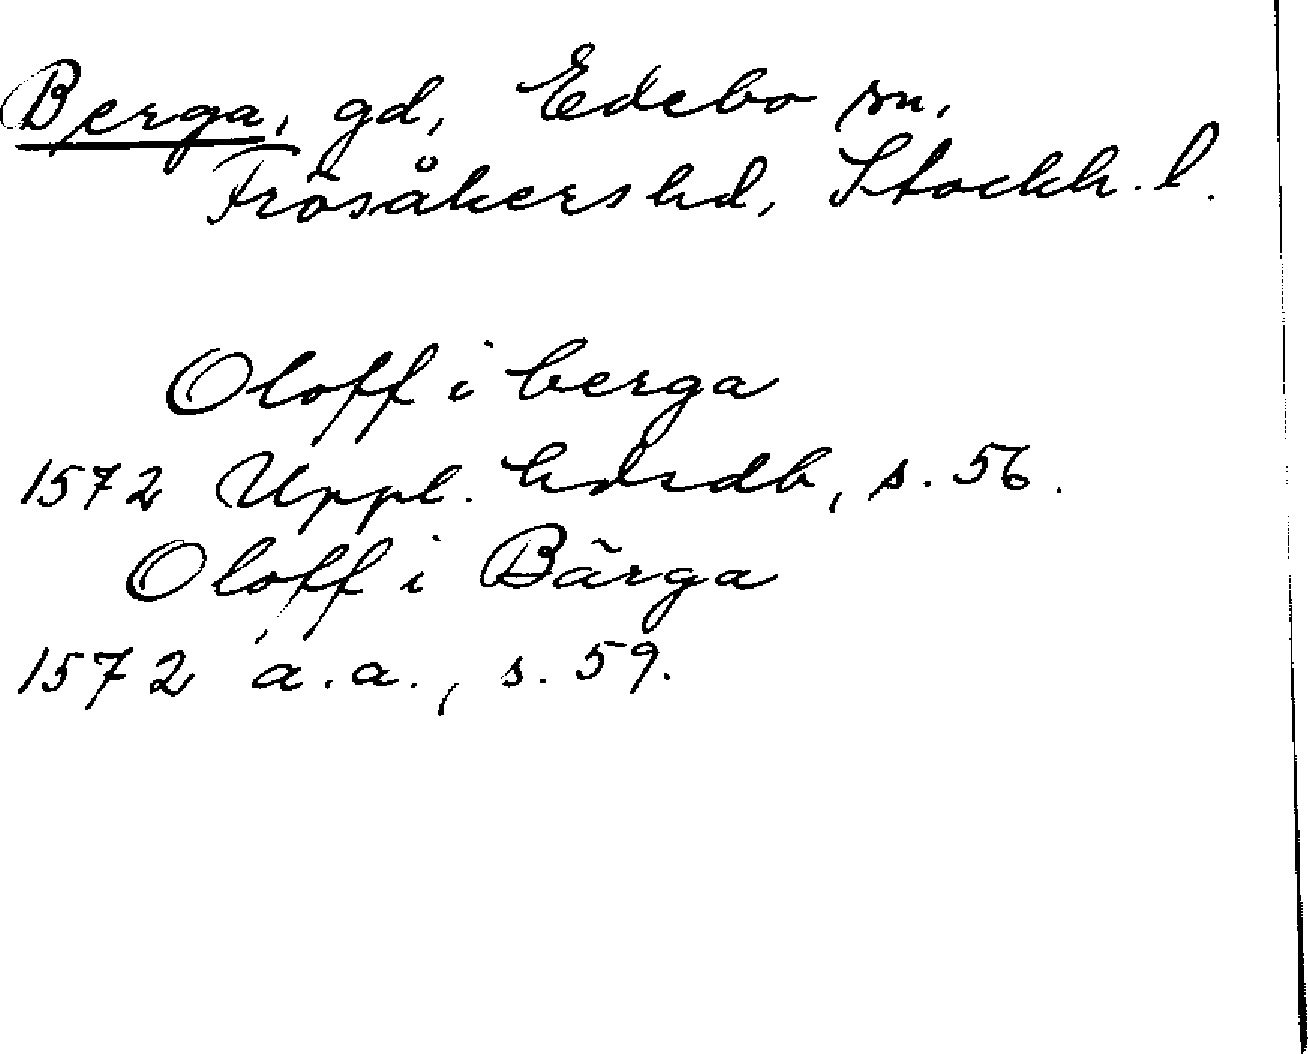 Berga, gd, Edebo sn,
Frösåkers hd, Stockh. l.
Oloff i berga
1572 Uppl. hdrdb, s. 56.
Oloff i Bärga
1572 a.a., s. 59.